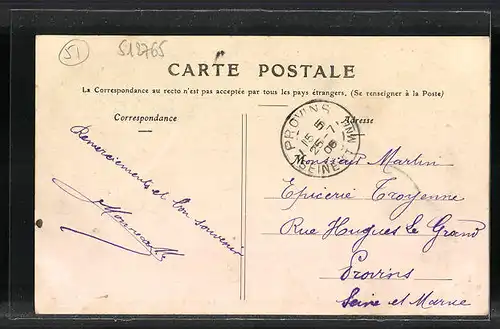 51
512765
CARTE POSTALE
La Correspondance au recto n'est pas acceptée par tous les pays étrangers. (Se renseigner à la Poste)
Correspondance
Adresse
PROVINS
SEINE
Remerciements et bon souvenir
Monsieur Martin
Epicerie Troyenne
Rue Hugues le Grand
Provins
Seine et Marne